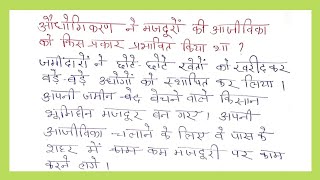 औद्योगिकरण ने मजदूरों की आजीविका
को किस प्रकार प्रभावित किया था ?
जमींदारों ने छोटे-छोटे खेतों को खरीदकर
बड़े-बड़े उद्योगों को स्थापित कर लिया ।
अपनी जमीन बेचने वाले किसान
भूमिहीन मजदूर बन गए । अपनी
आजीविका चलाने के लिए वे पास के
शहर में कम मजदूरी पर काम
करने लगे ।